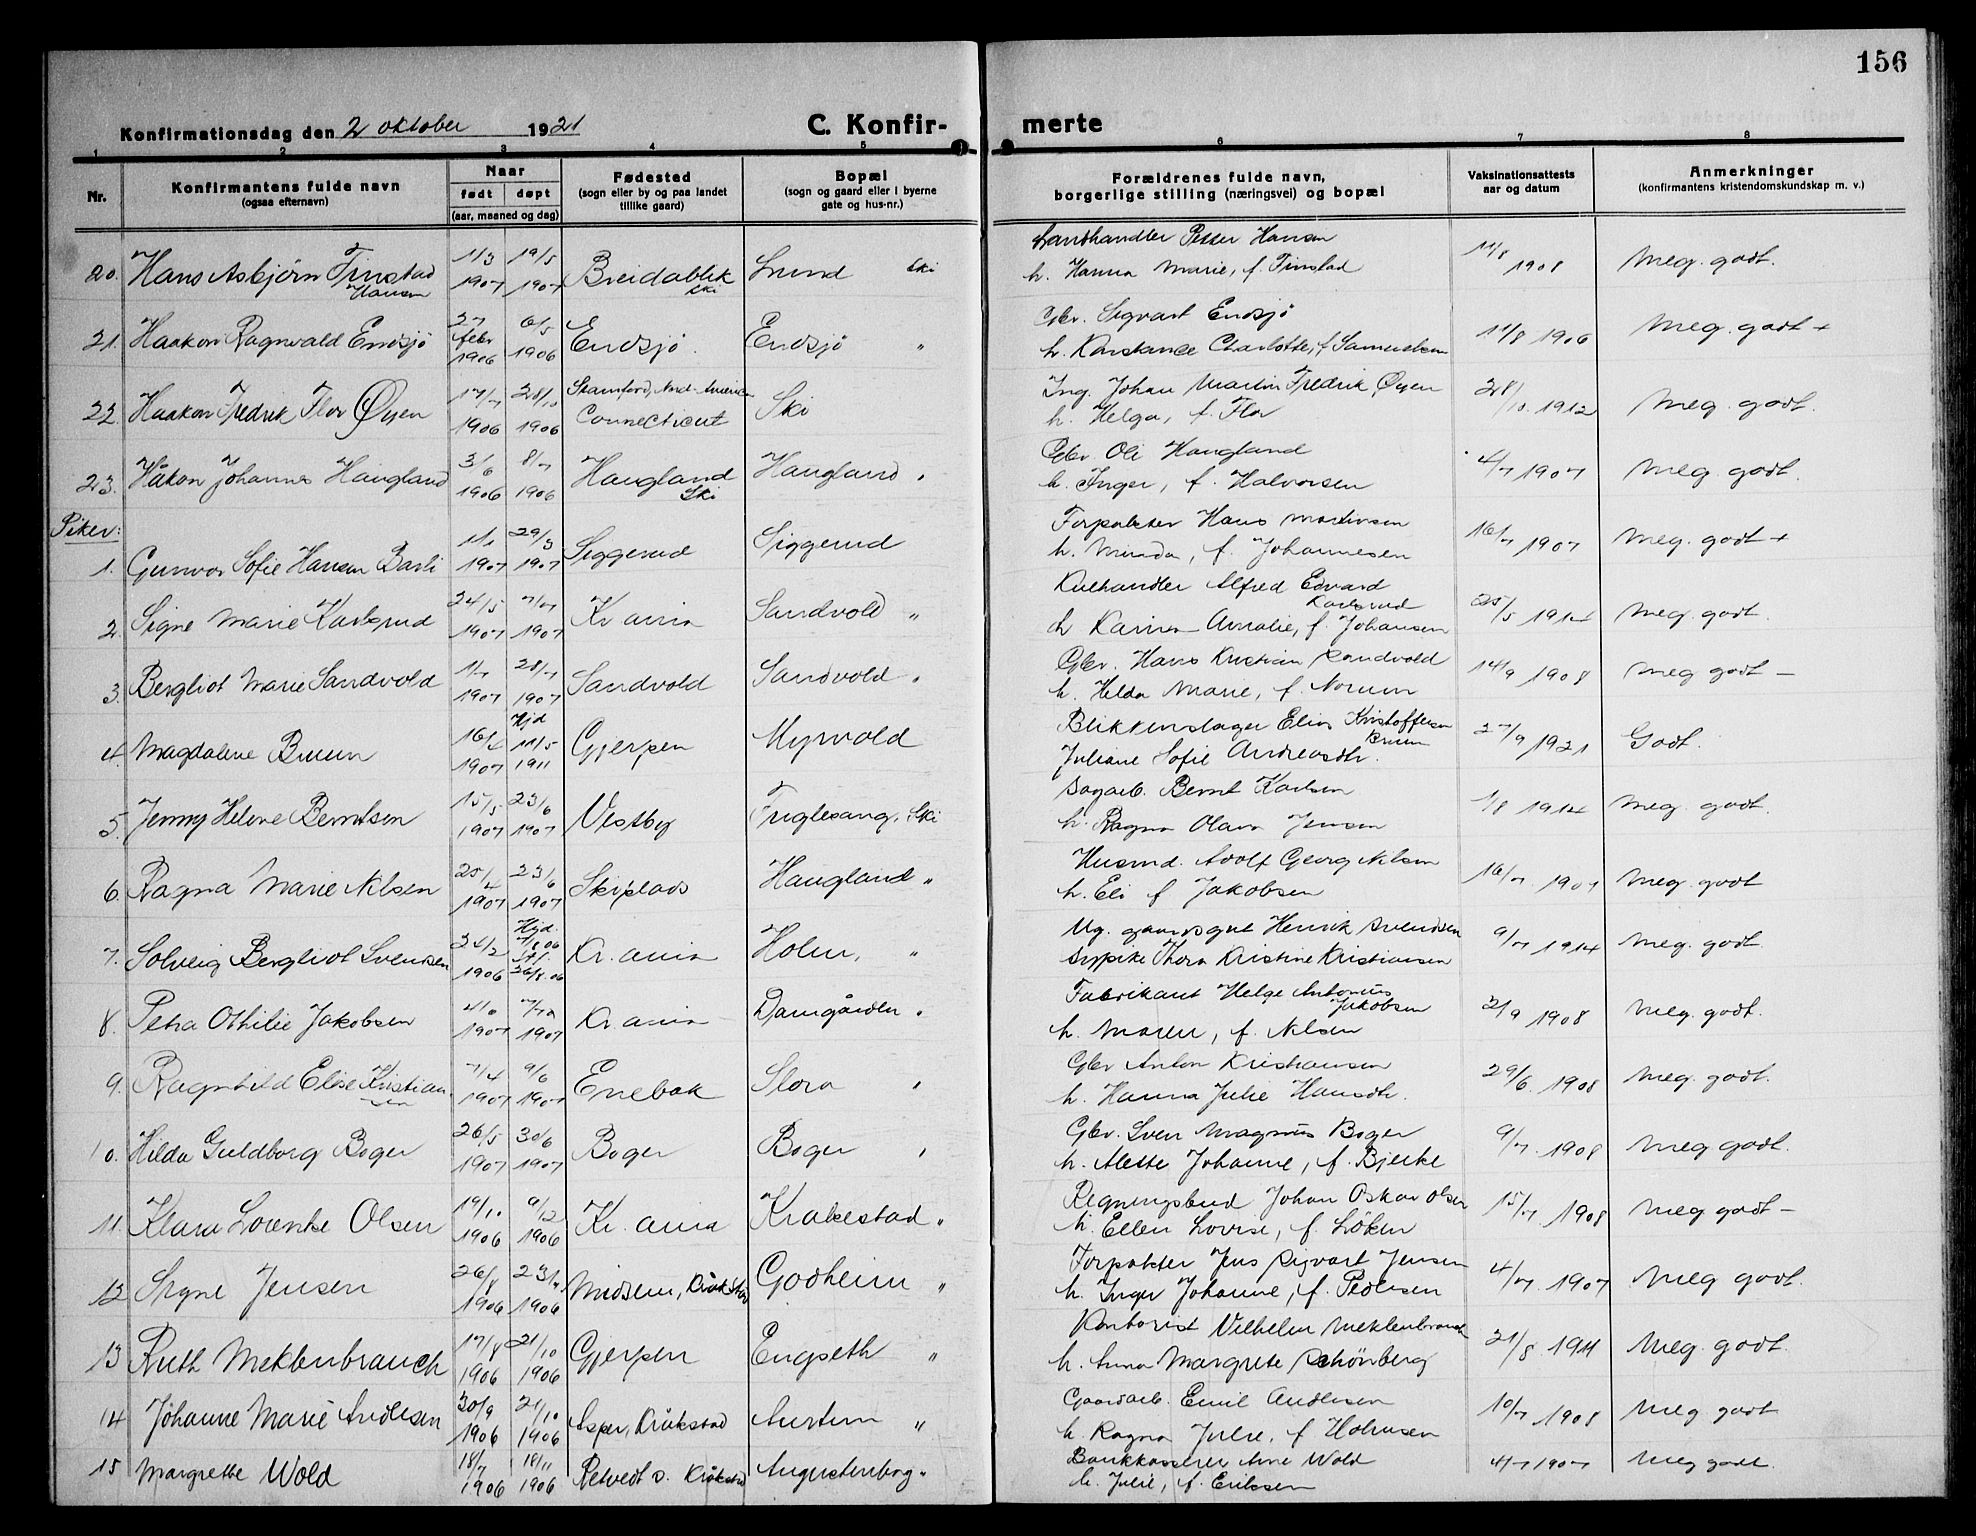 156
Konfirmationsdag den 2 oktober 1921
C. Konfir-
merte
1 2 3 4 5 6 7 8
Nr.
Konfirmantens fulde navn
(ogsaa efternavn)
Naar
født døpt
(aar, maaned og dag)
Fødested
(sogn eller by og paa landet
tillike gaard)
Bopæl
(sogn og gaard eller i byerne
gate og hus-nr.)
Forældrenes fulde navn,
borgerlige stilling (næringsvei) og bopæl
Vaksinationsattests
aar og datum
Anmerkninger
(konfirmantens kristendomskundskap m. v.)
20. Hans Asbjørn Finstad Hansen 11/3 1907 19/5 1907 Breidablik Ski Lund Ski Landhandler Petter Hansen
h. Hanna Marie, f. Finstad 11/8 1908 Meg. godt.
21. Haakon Ragnvald Endsjø 27 febr 1906 6/5 1906 Endsjø. Endsjø " Gbr. Sigvart Endsjø
h. Konstance Charlotte, f. Samuelsen 11/8 1906 Meg. godt +
22. Haakon Fredrik Flor Øyen 17/7 1906 28/10 1906 Stamford, Nord-Amerika Connecticut Ski Ing. Johan Martin Fredrik Øyen
h. Helga, f. Flor 28/10 1912 Meg. godt.
23. Håkon Johannes Haugland 3/6 1906 8/7 1906 Haugland Ski Haugland " Gbr. Ole Haugland
h. Inger, f. Halvorsen 4/7 1907 Meg. godt.
Piker:
1. Gunvor Sofie Hansen Basli 1/1 1907 29/3 1907 Siggerud Siggerud Forpakter Hans Martinsen
h. Minda, f. Johannesen 16/7 1907 Meg. godt +
2. Signe Marie Karlsrud 24/5 1907 7/7 1907 Kr.ania Sandvold " Kulhandler Alfred Edvard Karlsrud
h. Karina Amalie, f. Johansen 25/5 1914 Meg. godt.
3. Bergliot Marie Sandvold 1/7 1907 28/7 1907 Sandvold Sandvold " Gbr. Hans Kristian Sandvold
h. Helda Marie, f. Norum 14/9 1908 Meg godt –
4. Magdalene Bruun 16/4 1907 Hjd 11/5 1911 Gjerpen Myrvold Blikkenslager Elias Kristoffersen Bruun
Juliane Sofie Andreasdtr. 27/9 1921 Godt.
5. Jenny Helene Berntsen 15/5 1907 23/6 1907 Vestby Fuglesang, Ski Sagarb. Bernt Karlsen
h. Ragna Olava Jensen 1/8 1914 Meg. godt.
6. Ragna Marie Nilsen 25/4 1907 23/6 1907 Skiplads Haugland " Husmd. Adolf Georg Nilsen
h. Eli f. Jakobsen 16/7 1907 Meg. godt
7. Solveig Bergliot Svendsen 24/2 1906 Hjd. 7/8 06 Stf. 26/8.06 Kr. ania Holm, " Ug. gaardsgut Henrik Svendsen
Sypike Thora Kristine Kristiansen 9/7 1914 Meg. godt.
8. Petra Othilie Jakobsen 1907 1907 Kr. ania Damgården " Fabrikant Helge Antonius Jakobsen
h. Maren, f. Nilsen 21/9 1908 Meg. godt.
9. Ragnhild Elise Kristiansen 7/4 1907 9/6 1907 Enebak Slora " Gbr Anton Kristiansen
h. Hanna Julie Hansdtr. 29/6 1908 Meg. godt.
10. Hilda Guldborg Boger 26/5 1907 30/6 1907 Boger Boger " Gbr. Sven Magnus Boger
h. Alette Johanne, f. Bjerke 9/7. 1908 Meg godt.
11. Klara Lovenke Olsen 19/10 1906 9/12 1906 Kr. ania Krakestad " Regningsbud Johan Oskar Olsen
h. Ellen Lovise, f. Löken 15/7 1908 Meg godt –
12 Signe Jensen 26/8 1906 1906 Midsem, Kråkstad Godheim " Forpakter Jens Sigvart Jensen
h. Inger Johanne, f. Pedersen 4/7. 1907 Meg godt.
13 Ruth Meklenbrauch 17/8 1906 21/10 1906 Gjerpen Engseth " Kontorist Vilhelm Meklenbrauch
h. Anna Margrete Schönberg 21/8. 1911 Meg. godt.
14 Johanne Marie Andersen 30/9 1906 21/10 1906 Asper, Kråkstad Austem " Gaardarb. Emil Andersen
h. Ragna Julie, f. Holmsen 10/7 1908 Meg godt
15 Margrethe Wold 18/7 1906 18/11 1906 Retvedt v. Kråkstad Augustenborg " Bankkasserer Arne Wold
h. Julie, f. Eriksen 4/7 1907 Meg godt.